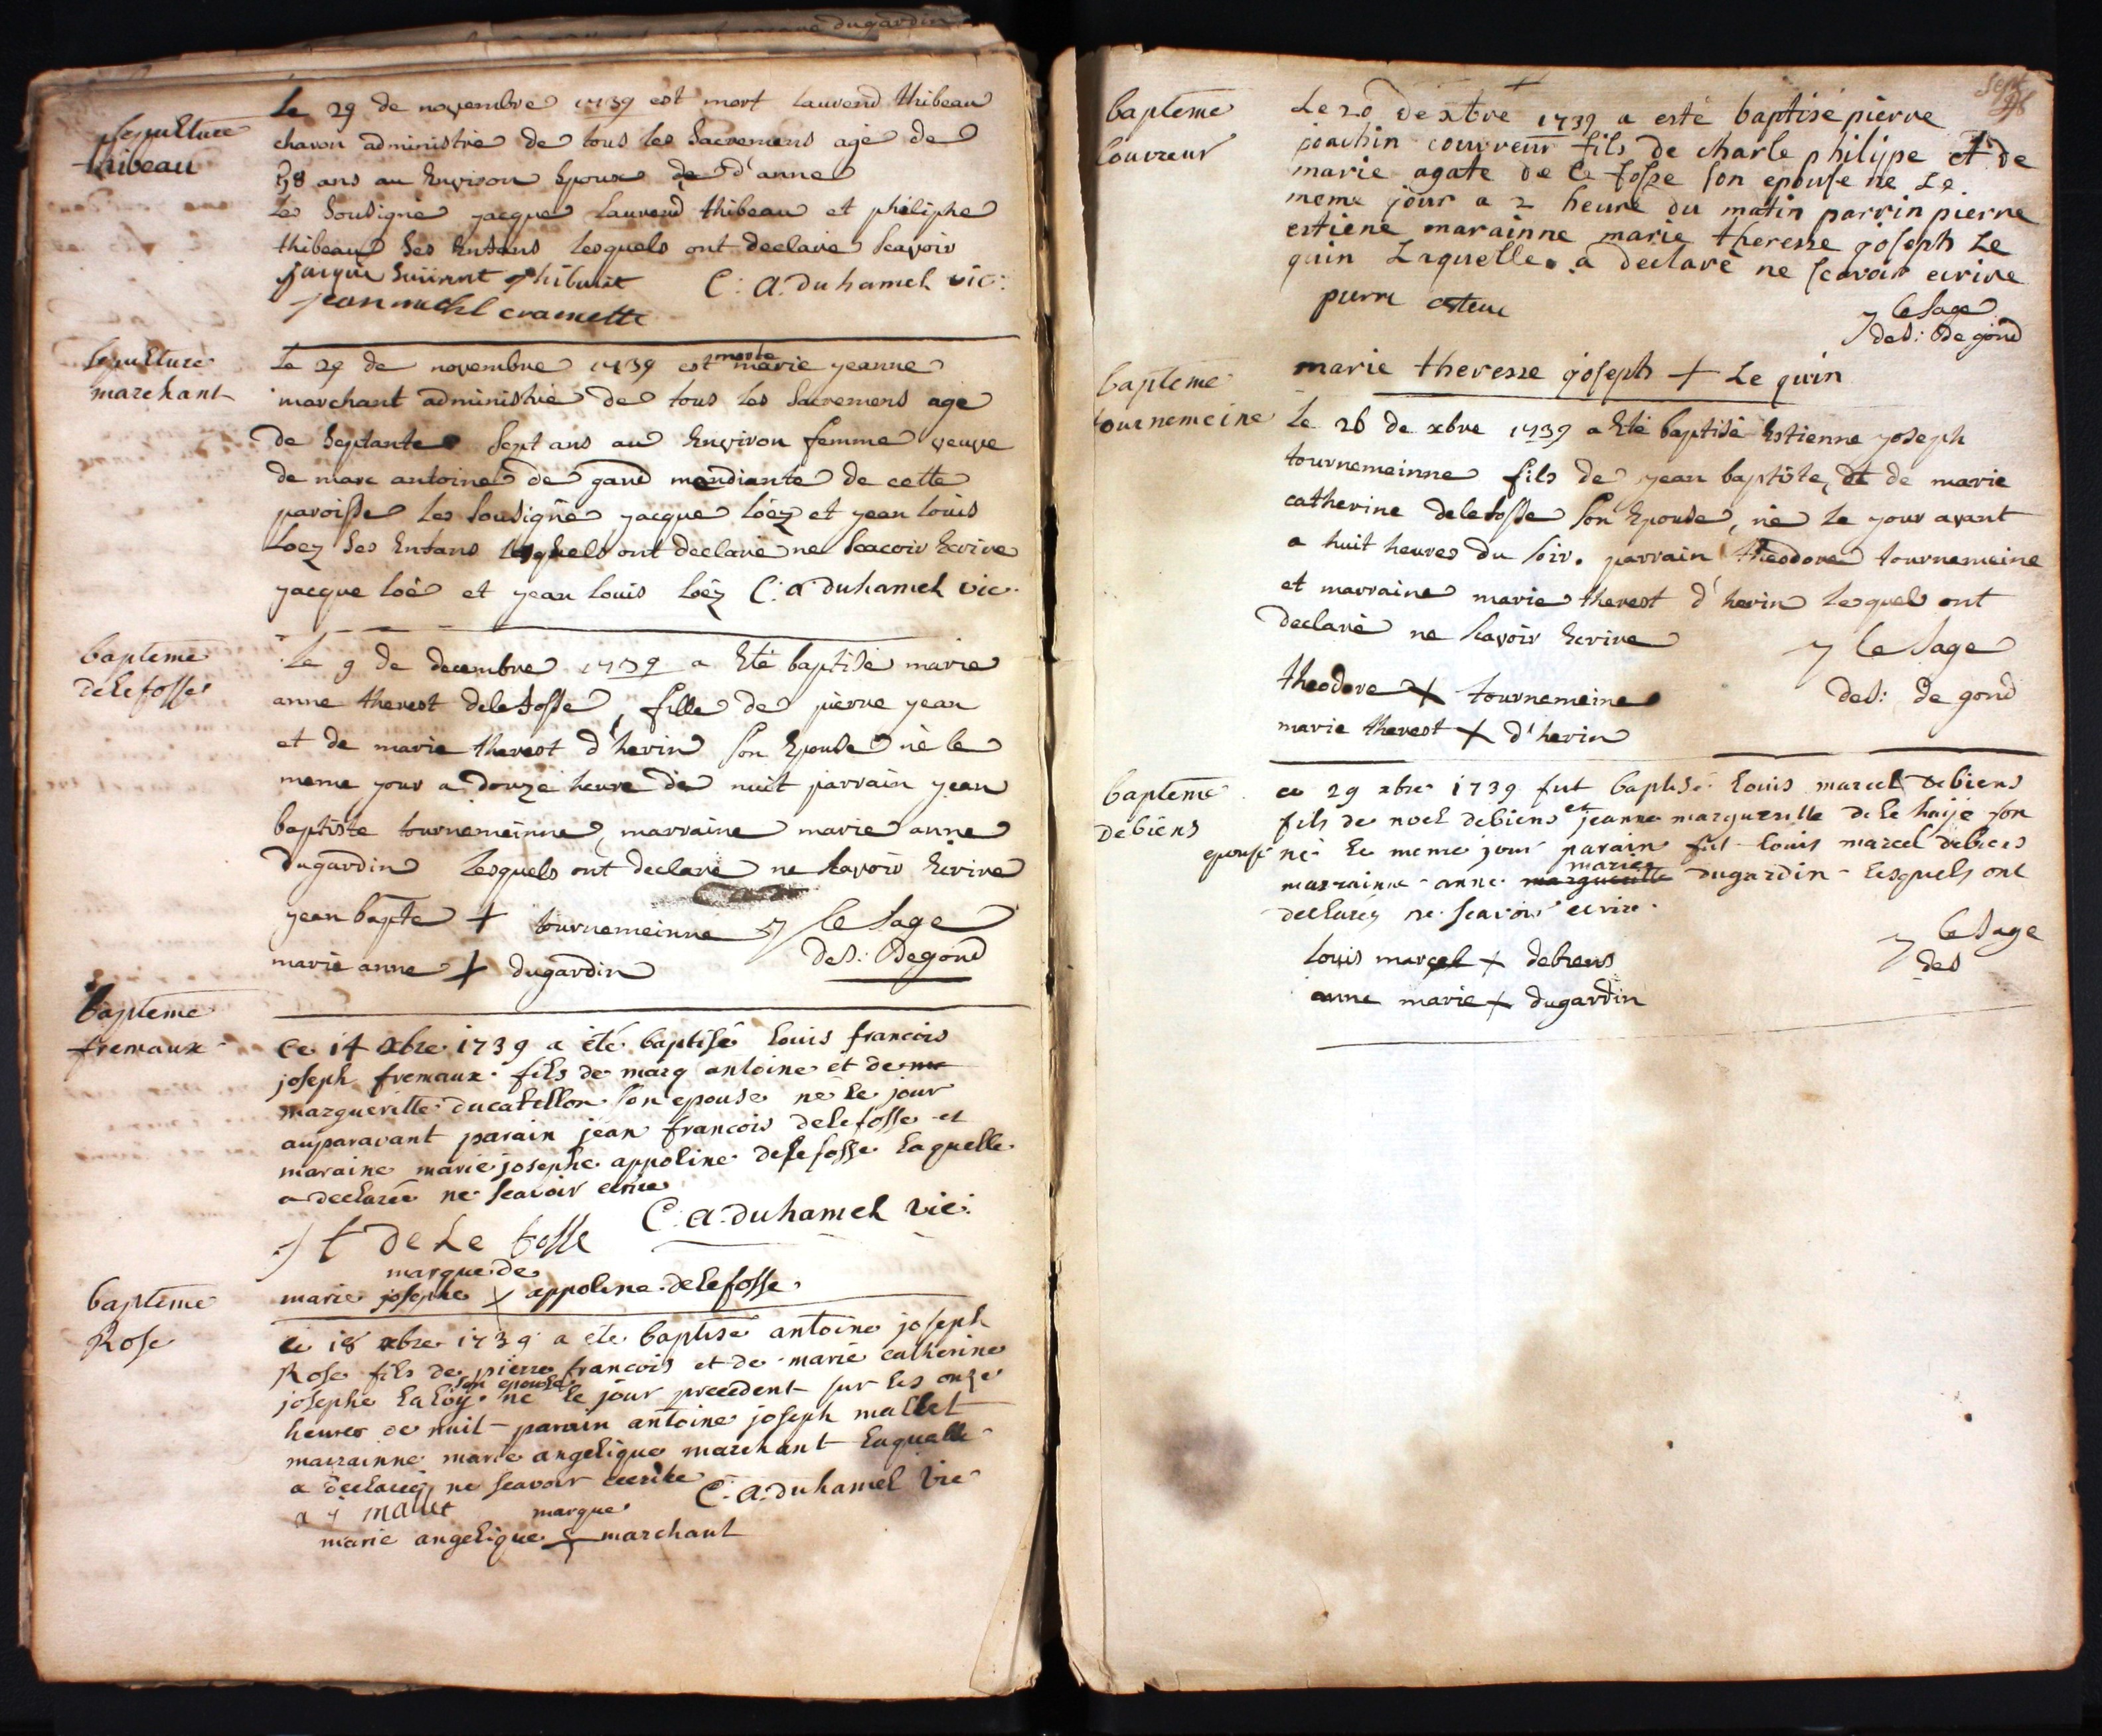 dugardin
sepulture
thibeau
Le 29 de novembre 1739 est mort laurend thibeau
charon administré de tous les sacremens agé de
58 ans au environ epoux de d'anne
les sousigné jacque laurend thibeau et philiphe
thibeau ses enfans lesquels ont declaré scavoir
C: A: duhamel vic:
jean michel cramette
sepulture
marchant
Le 29 de novembre 1739 est morte marie jeanne
marchant administrée de tous les sacremens agé
de septante sept ans au environ femme veuve
de marc antoine de gand mendiante de cette
paroisse les sousigné jacque loéz et jean louis
loez ses enfans lesquels ont declaré ne scacoir ecrire
jacque loé et jean louis loéz C: a duhamel vic.
bapteme
delefosse
le 9 de decembre 1739 a eté baptisé marie
anne therest delefosse fille de pierre jean
et de marie therest d'herin son epouse né le
meme jour a douze heure de nuit parrain jean
baptiste tournemeinne, marraine marie anne
dugardin lesquels ont declaré ne scavoir ecrire
jean bapte + tournemeinne J le Sage
marie anne + dugardin des: Degond
bapteme
fremaux
Ce 14 xbre 1739 a été baptisé louis francois
joseph fremaux fils de marq antoine et de
margueritte ducatillon son epouse né le jour
auparavant parain jean francois delefosse et
maraine marie josephe appoline delefosse laquelle
a declarée ne scavoir ecrire
C: a: duhamel vic:
J f De Le fosse
marque de
marie josephe x appoline delefosse
bapteme
Rose
ce 18 xbre 1739 a été baptisé antoine joseph
Rose fils de pierre francois et de marie catherine
josephe laloÿ son epouse né le jour precedent sur les onze
heures de nuit parain antoine joseph mallet
marainne marie angelique marchant laquelle
a declareé ne scavoir ecrire C: a: duhamel vic
a j mallet marque
marie angelique + marchant
Sept
bapteme
Couvreur
Le 20 de xbre 1739 a esté baptisé pierre
joachin couvreur fils de charle philipe et de
marie agate de le fosse son epouse ne Le
meme jour a 2 heure du matin parrin pierre
estiene marainne marie theresse joseph Le
quin Laquelle a declaré ne scavoir ecrire
J le Sage
des: De gond
marie theresse joseph + Le quin
bapteme
tournemeine
le 26 de xbre 1739 a eté baptisé estienne joseph
tournemeinne fils de jean baptiste, et de marie
catherine delefosse son epouse, né le jour avant
a huit heures du soir. parrain theodore tournemeine
et marraine marie therest d'herin lesquel ont
declaré ne scavoir ecrire J le Sage
theodore + tournemeine des: de gond
marie therest + d'herin
bapteme
debiens
ce 29 xbre 1739 fut baptisé louis marcel debiens
fils de noel debiens et jeanne margueritte de le haije son
epouse né le meme jour parain fut louis marcel debiens
marrainne anne margueritte marie dugardin lesquels ont
declarez ne scavoir ecrire
J le Sage
louis marcel + debiens des
anne marie + dugardin